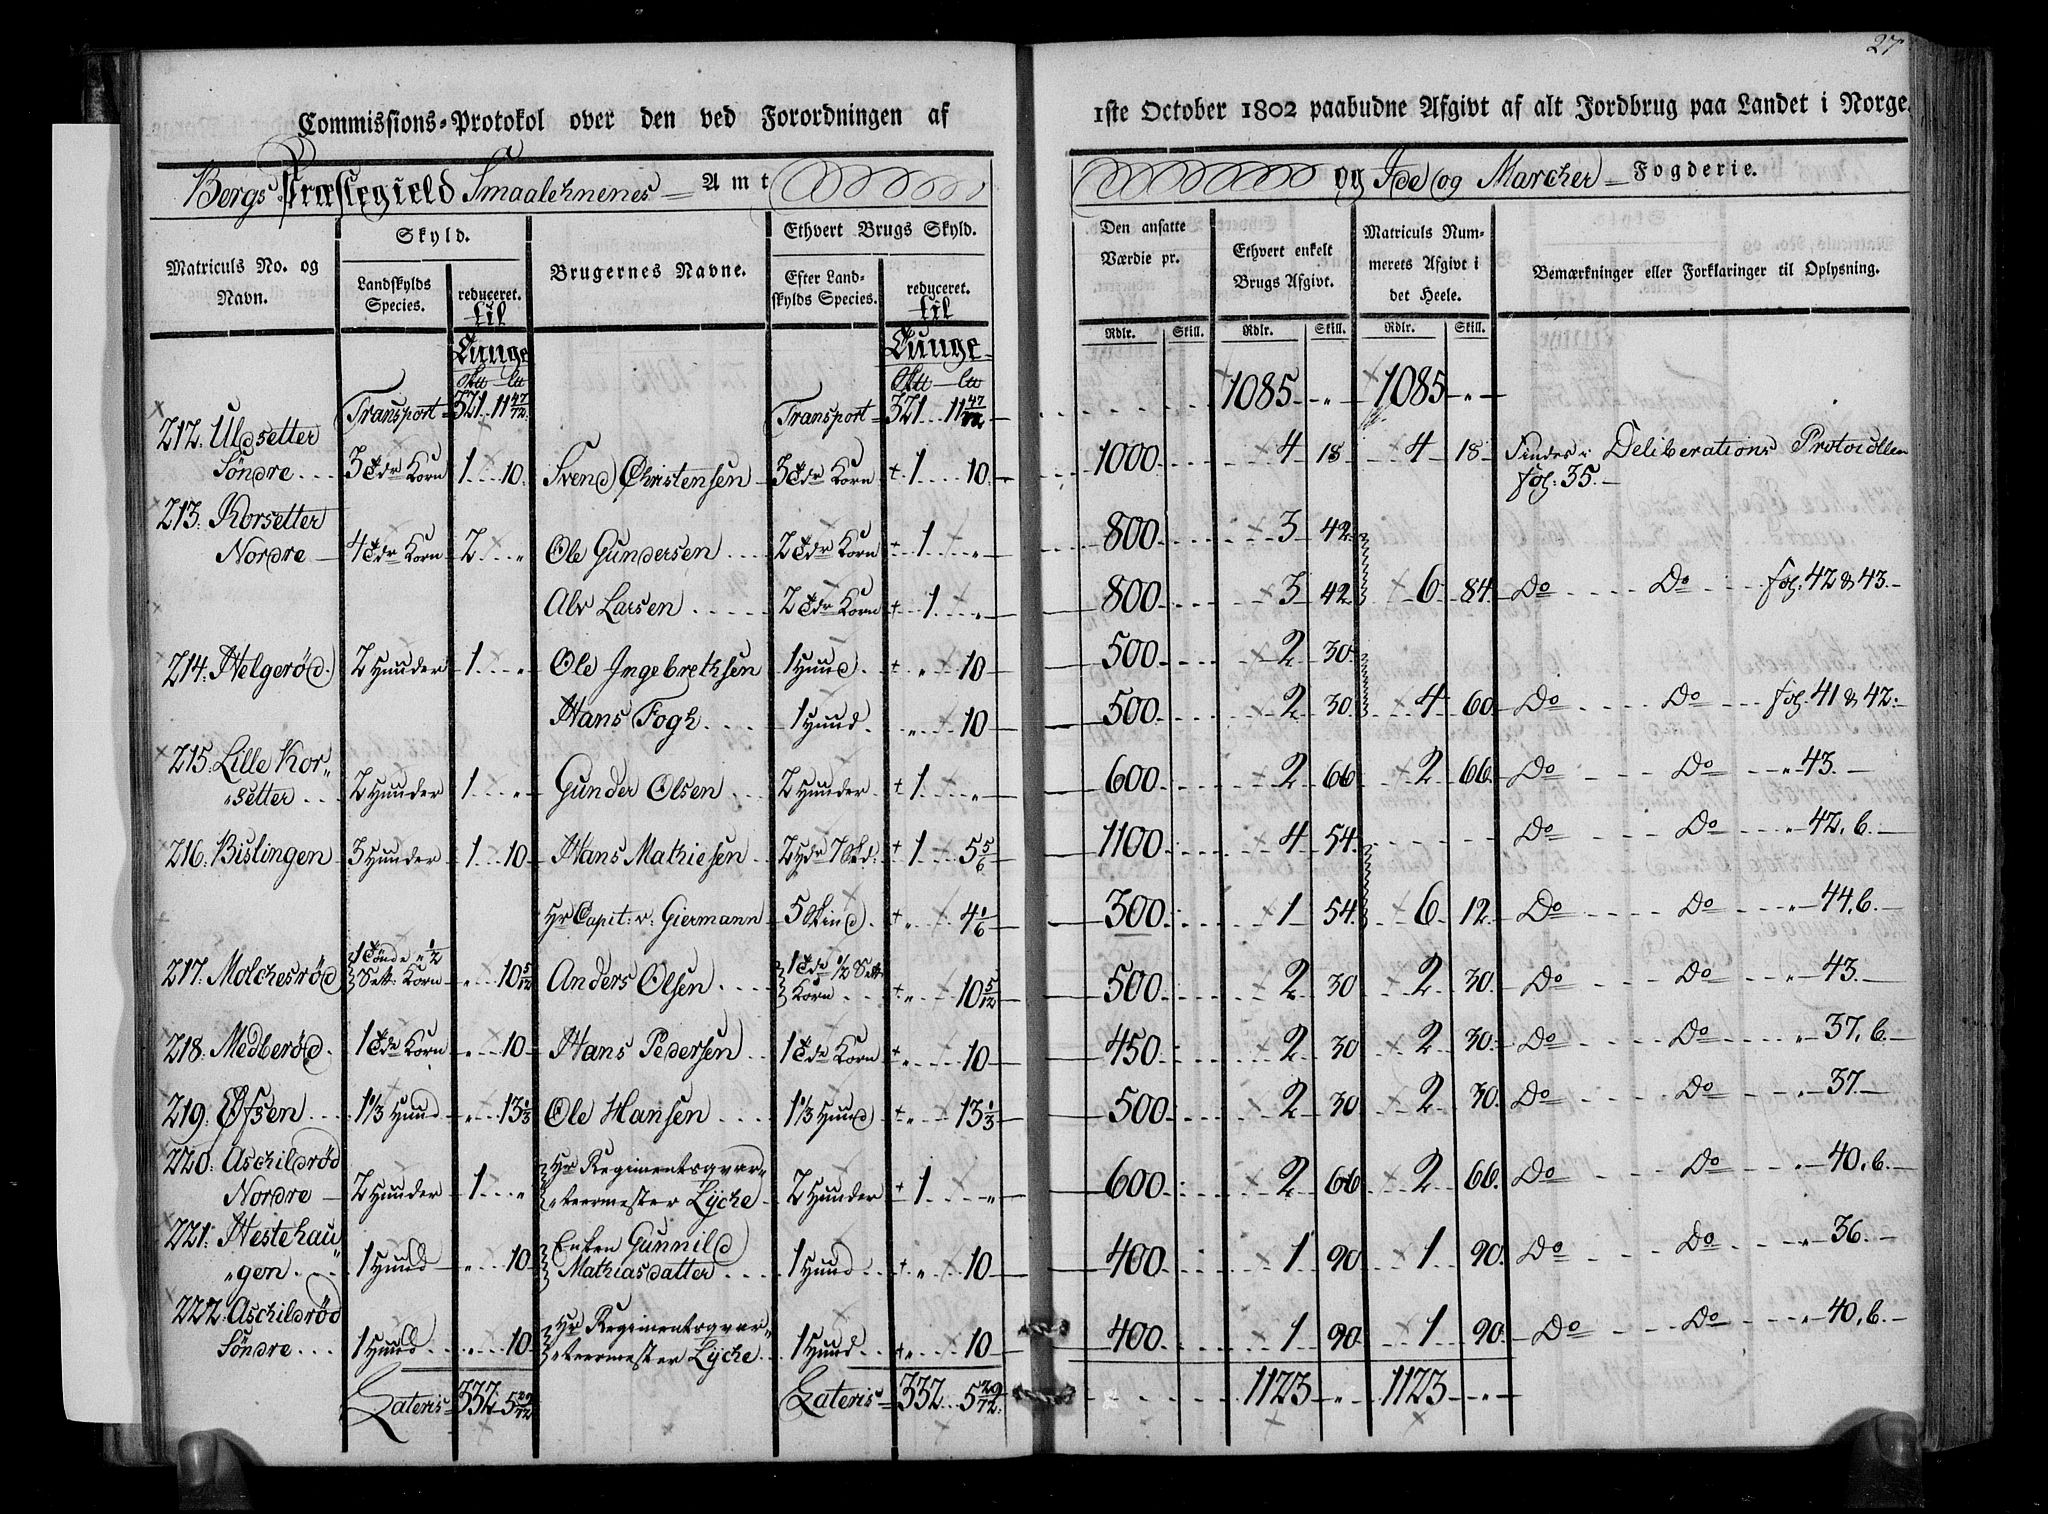 27
Commissions-Protokol over den ved Forordningen af 1ste October 1802 paabudne Afgivt af alt Jordbrug paa Landet i Norge.
Bergs Præstegield Smaalehnenes Amt og Ide og Marcher Fogderie.
Matriculs No. og Navn. | Skyld. Landskylds Species. | reduceret. til Tunge | Brugernes Navne. | Ethvert Brugs Skyld. Efter Landskylds Species. | reduceret. til Tunge | Den ansatte Værdie pr. Rdlr. Skill. | Ethvert enkelt Brugs Afgivt. Rdlr. Skill. | Matriculs Nummerets Afgivt i det Heele. Rdlr. Skill. | Bemærkninger eller Forklaringer til Oplysning.
Transport 321 11 47/72 | Transport 321 11 47/72 | 1085 " | 1085 "
212. Uldsetter Söndre | 3 Tdr Korn | 1 10 | Svend Christensen | 3 Tdr Korn | 1 10 | 1000 | 4 18 | 4 18 | Findes i Deliberations Protocollen fol: 35.
213. Korsetter Nordre | 4 Tdr Korn | 2 " | Ole Gundersen | 2 Tdr Korn | 1 " | 800 | 3 42
Alv Larsen | 2 Tdr Korn | 1 " | 800 | 3 42 | 6 84 | Do Do fol. 42 & 43.
214. Helgeröd | 2 Hunder | 1 " | Ole Ingebrethsen | 1 Hund | " 10 | 500 | 2 30
Hans Fogh | 1 Hund | " 10 | 500 | 2 30 | 4 60 | Do Do fol. 41 & 42.
215. Lille Kor"
"setter | 2 Hunder | 1 " | Gunder Olsen | 2 Hunder | 1 " | 600 | 2 66 | 2 66 | Do Do " 43.
216. Bislingen | 3 Hunder | 1 10 | Hans Mathiesen | 2 Hdr 7 Skd: | 1 5 5/6 | 1100 | 4 54 | Do Do " 42, b.
Hr Capit: v. Giermann | 5 Skind | " 4 1/6 | 300 | 1 54 | 6 12 | Do Do " 44, b.
217. Molchesröd | 1 Tönde " 1/2 Sett: Korn | " 10 5/12 | Anders Olsen | 1 Tde 1/2 Sett: Korn | " 10 5/12 | 500 | 2 30 | 2 30 | Do Do " 43.
218. Medberöd | 1 Tde Korn | " 10 | Hans Pedersen | 1 Tde Korn | " 10 | 450 | 2 30 | 2 30 | Do Do " 37, b.
219. Öfsen | 1 1/3 Hund | " 13 1/3 | Ole Hansen | 1 1/3 Hund | " 13 1/3 | 500 | 2 30 | 2 30 | Do Do " 37.
220. Aschildröd Nordre | 2 Hunder | 1 " | Hr Regimentsqvar"
"teermester Lÿche | 2 Hunder | 1 " | 600 | 2 66 | 2 66 | Do Do " 40, b.
221. Hestehau"
"gen | 1 Hund | " 10 | Enken Gunnild Mathiasdatter | 1 Hund | " 10 | 400 | 1 90 | 1 90 | Do Do " 36.
222. Aschildröd Söndre | 1 Hund | " 10 | Hr Regimentsqvar"
"teermester Lÿche | 1 Hund | " 10 | 400 | 1 90 | 1 90 | Do Do " 40, b.
Lateris 332 5 29/72 | Lateris 332 5 29/72 | 1123 " | 1123 "